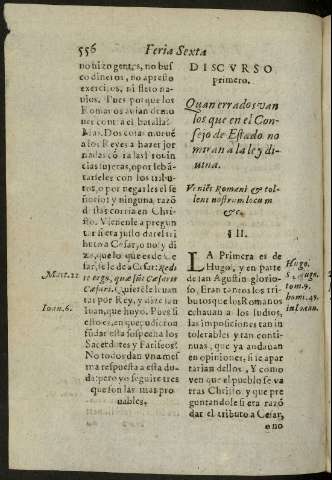 556
Feria Sexta
no hizo gentes, no bus
co dineros, no apresto
exercitos, ni fleto na
uios. Pues porque los
Romanos auian de mo
uer contra el batalla?
Mas. Dos cosas mueuē
a los Reyes a hazer jor
nadas cōtra sus prouin
cias sujetas, o por leuā
tarseles con los tribu-
tos, o por negarles el se
ñorio: y ninguna, razō
destas corria en Chri-
sto. Viene nle a pregun
tar si era justo darle tri
buto a Cesar, no y di
ze, que lo que es de Ce
sar, se le de a Cesar: Redi
te ergo, quæ sunt Cæsaris
Cæsari. Quierē le leuan
tar por Rey, y dize san
Iuan, que huyo. Pues si
esto es, en que, o dictor
fundais esta sospecha los
Sacerdotes y Fariseos?
No todos dan vna mes
ma respuesta a esta du
da: pero yo seguire tres
que son las mas pro-
uables,
Matt. 22
Ioan. 6.
DISCVRSO
primero.
Quan errados van
los que en el Con-
sejo de Estado no
miran a la ley di-
uina.
Veniēt Romani & tol-
lent nostrum locum
&c.
§ II.
LA Primera es de
Hugo, y en parte
de san Agustin glorio-
so, Eran tantos los tri-
butos que los Romanos
echauan a los Iudios,
las imposiciones tan in
tolerables y tan conti-
nuas, que ya andauan
en opiniones, si se apar
tarian dellos, Y como
ven que el pueblo se va
tras Christo y que pre
guntandole si era razō
dar el tributo a Cesar,
o no
Hugo.
S. Augu.
tom. 9.
homi. 49.
in Ioan.